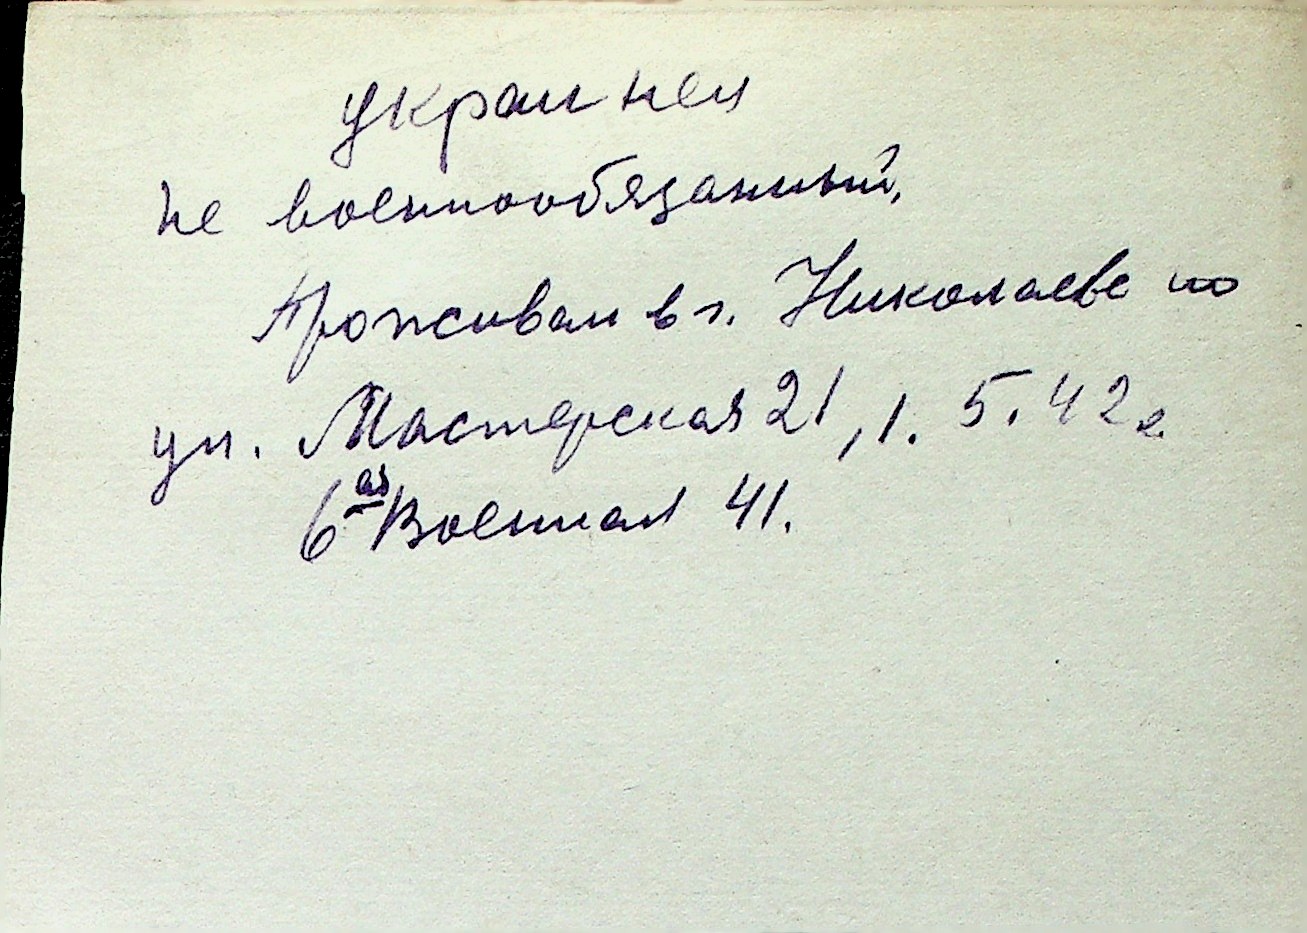 украинец
не военнообязанный,
Проживал в г. Николаеве по
ул. Мастерская 21, 1. 5. 42 г.
6ая Военная 41.